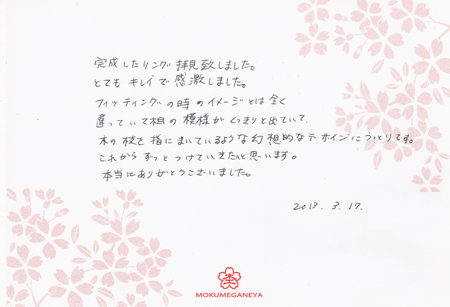 完成したリング拝見致しました。
とてもキレイで感激しました。
フィッティングの時のイメージとは全く
違っていて相の模様がくっきりと出ていて、
木の枝を指にまいているような幻想的なデザインにうっとりです。
これからずっとつけていきたいと思います。
本当にありがとうございました。
2013. 3. 17.
MOKUMEGANEYA